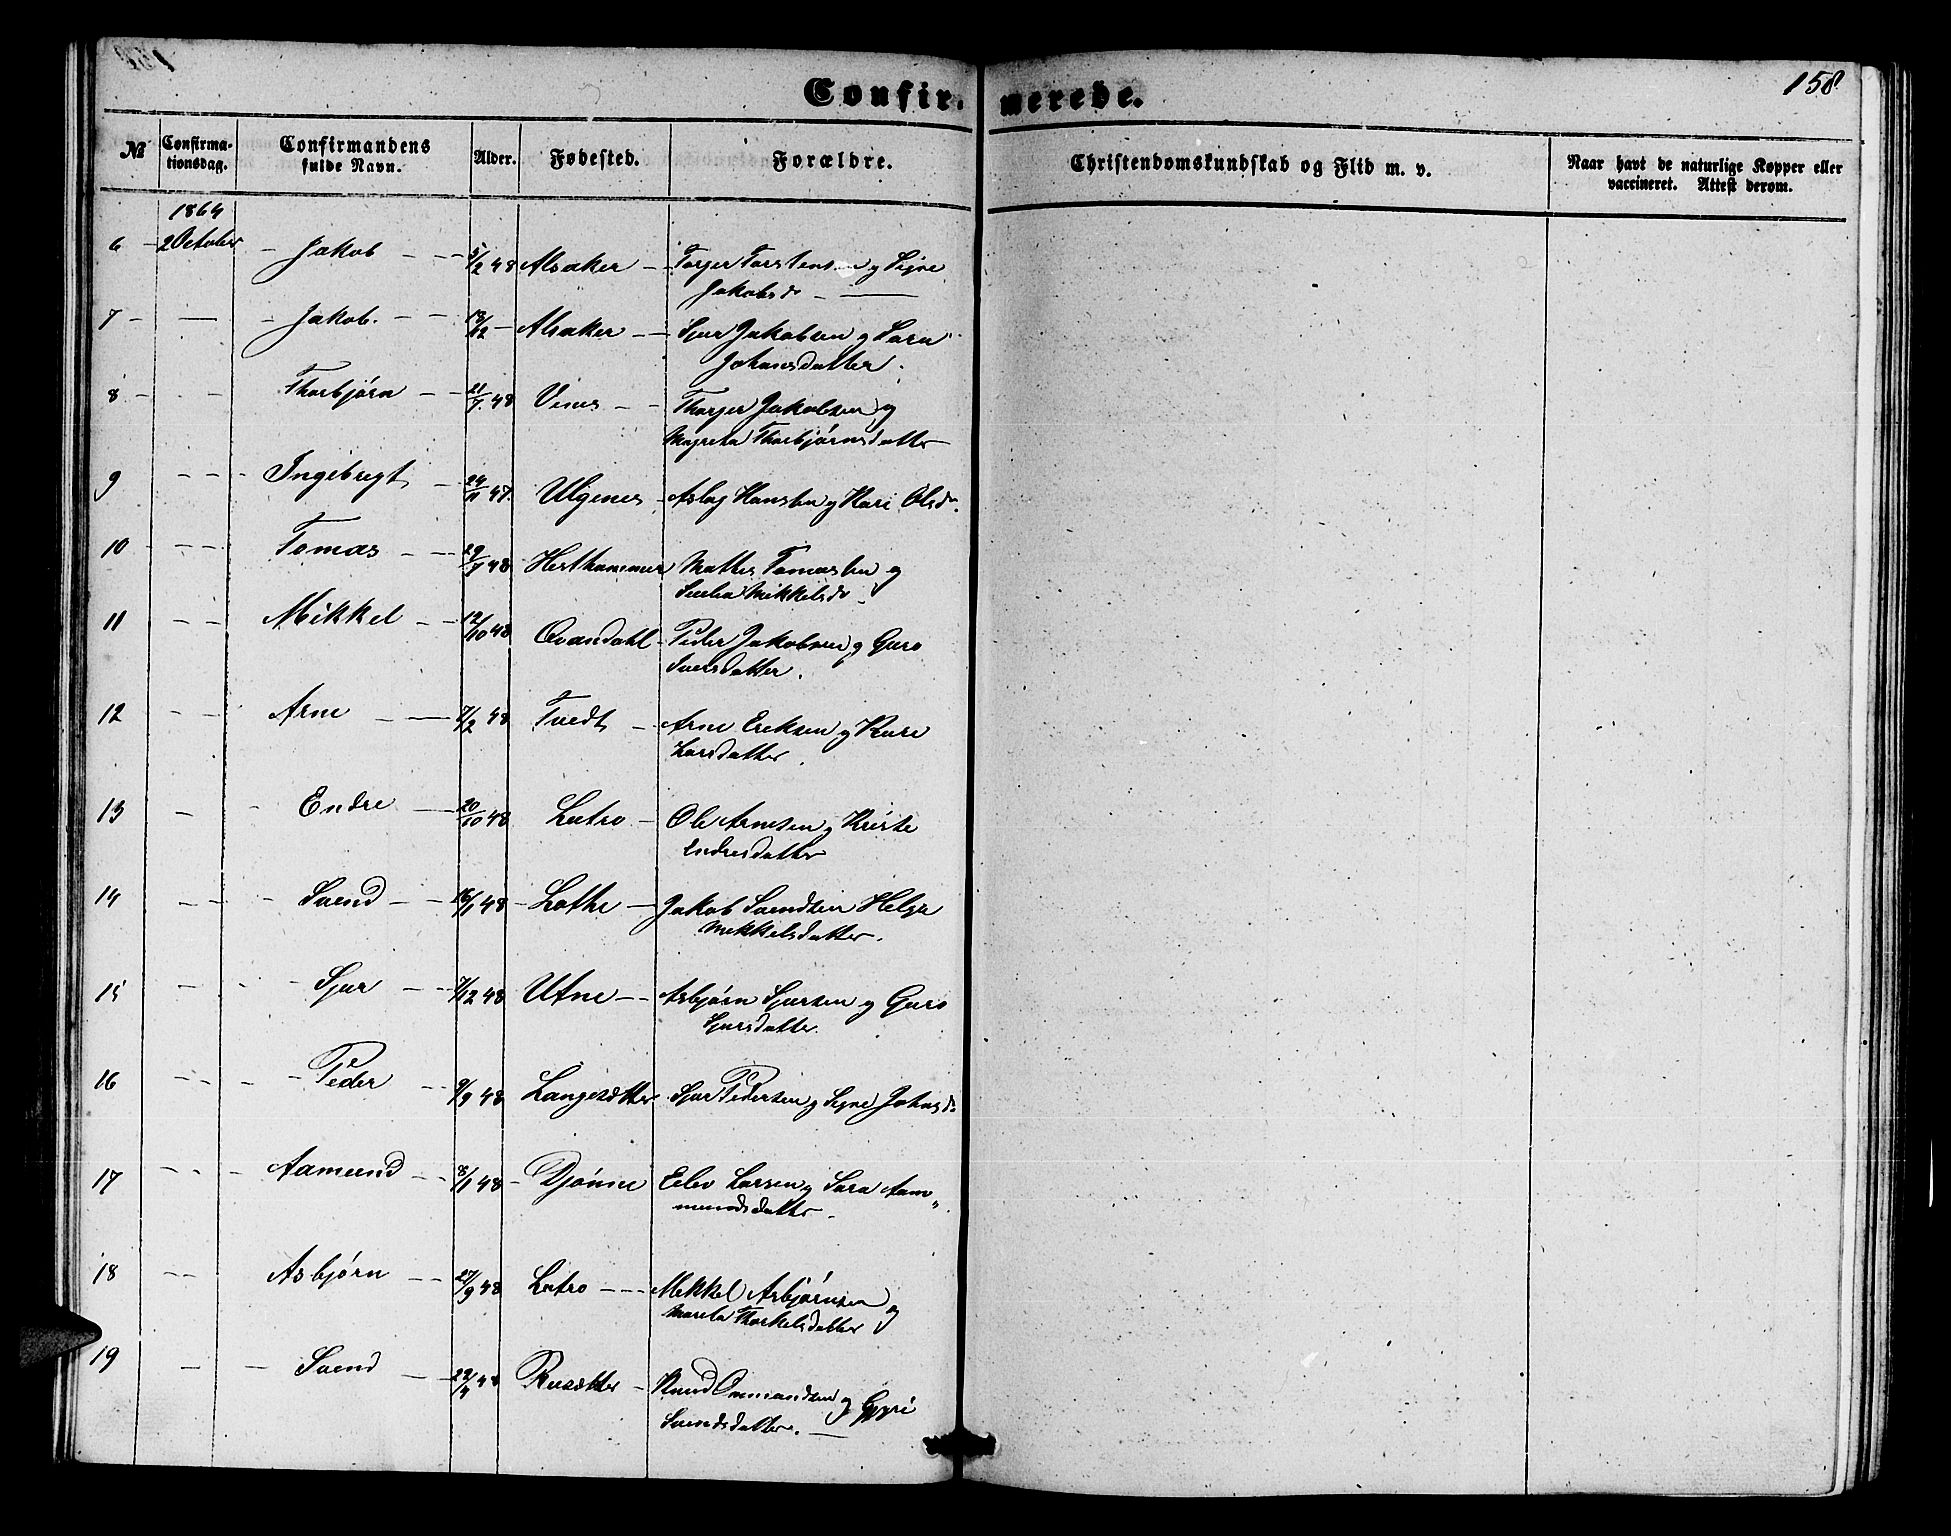 158
Confir- merede.
№ Confirma-tionsdag. Confirmandens fulde Navn. Alder. Fødested. Forældre. Christendomskundskab og Flid m. v. Naar havt de naturlige Kopper eller vaccineret. Attest derom.
1864
6 - 2 October - Jakob - - 5/2 48 Alsaker - Torger Torstensen og Signe
Jakobsd -
7 - - Jakob. - - 13/12 - Alsaker - Sjur Jakobsen og Sara
Johansdatter.
8 - - - Thorbjørn - - 21/7. 48 Vines - - Thorger Jakobsen og
Magreta Thorbjørnsdatter
9 - - - Ingebregt - 24/11 47. Ulgenes - Aslag Hansen og Kari Olsd.
10 - - - Tomas - - 29/7 48 Hesthammer Mathes Tomassen og
Mikkelsd.
11 - - Mikkel - - 12/10 48 Qvandahl - Peder Jakobsen og Guro
Svensdatter.
12 - - Arne - - 7/2 48 Tvedt - Arne Eriksen og Kari
Larsdatter.
13 - - Endre - 20/10 48 Lutro - Ole Arnesen og Kriste
Endresdatter
14 - - - Svend - - 16/1 48 - Lothe - Jakob Svendsen Helga
Mikkelsdatter.
15 - - - Sjur - - 7/12 48 Utne - - Asbjørn Sjursen og Guro
Sjursdatter.
16 - - - - Peder - 9/9 48 Langesætter Sjur Pedersen og Signe Johnsd
17 - - - Aamund - - 8/1 48 - Djønne Eilev Larsen og Sara Aam-
mundsdatter.
18 - - Asbjørn - - 27/9 48 Lutro - - - Mikkel Asbjørnsen og
Marita Thorkelsdatter
19 - - Svend - - 22/4 48 - Knud Ommundsen og Gyri
Svendsdatter. -